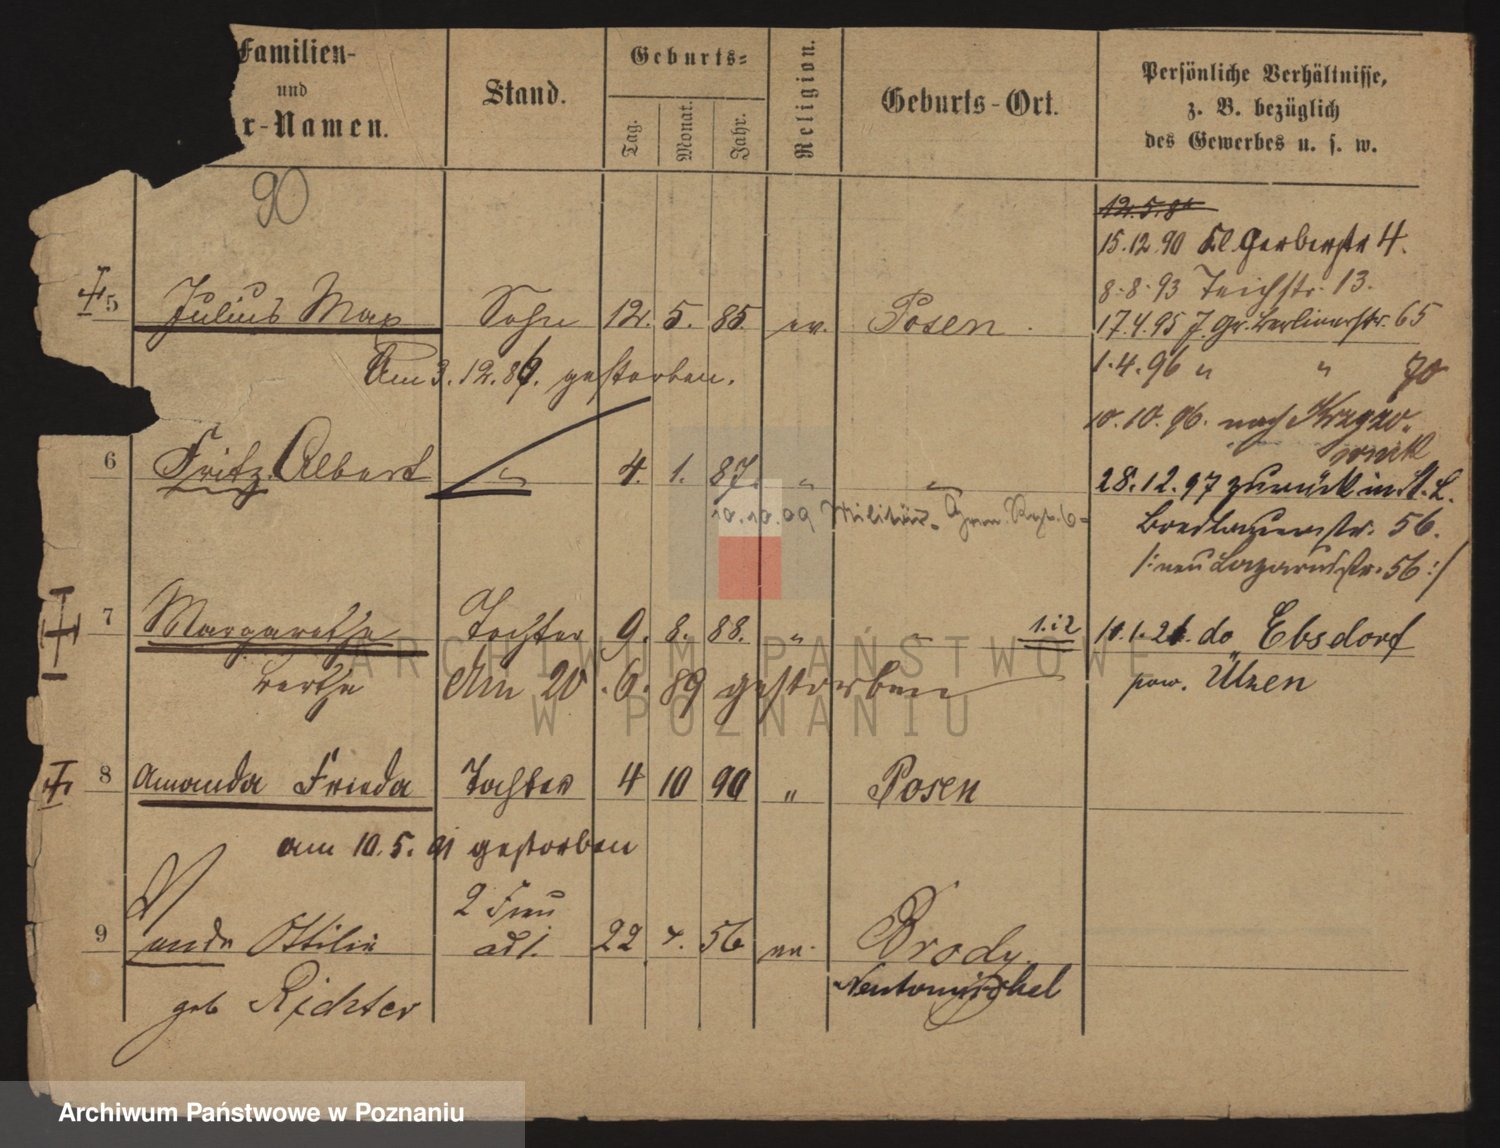 Familien-
und
r-Namen.
Stand.
Geburts-
Tag.
Monat.
Jahr.
Religion.
Geburts-Ort.
Persönliche Verhältnisse,
z. B. bezüglich
des Gewerbes u. s. w.
90
12.5.8
15.12.90 Kl. Gerberstr 4.
8.8.93 Teichstr. 13.
5 Julius Max Sohn 12. 5. 85. ev. Posen.
17.4.95 Gr. Berlinerstr. 65
Am 3.12.89. gestorben.
1.4.96 " " 70
10.10.96. nach
6 Fritz Albert " 4. 1. 87. " "
28.12.97 zurück in St. L.
10.10.09 Militär- Gren. Rgt. 6-
Breslauerstr. 56.
/: neu Lazarusstr. 56 :/
7 Margarethe Tochter 9. 8. 88. " " 1.i2
10.1.21. do Ebsdorf
Bertha Am 20.6.89 gestorben
pow. Ülzen
8 Amanda Frieda Tochter 4 10 90 " Posen
am 10.5.91 gestorben
9 Wanda Ottilie 2 Frau 22 4. 56 ev. Brody.
geb Richter Neutomischel
ARCHIWUM PAŃSTWOWE
W POZNANIU
Archiwum Państwowe w Poznaniu